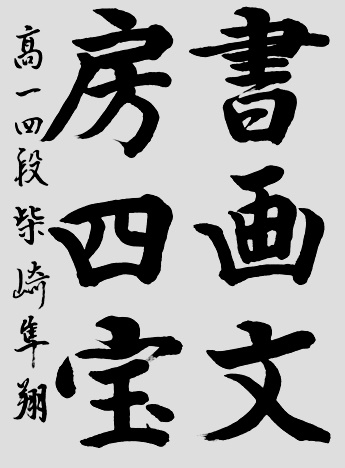 書画文
房四宝
高一四段柴崎隼翔